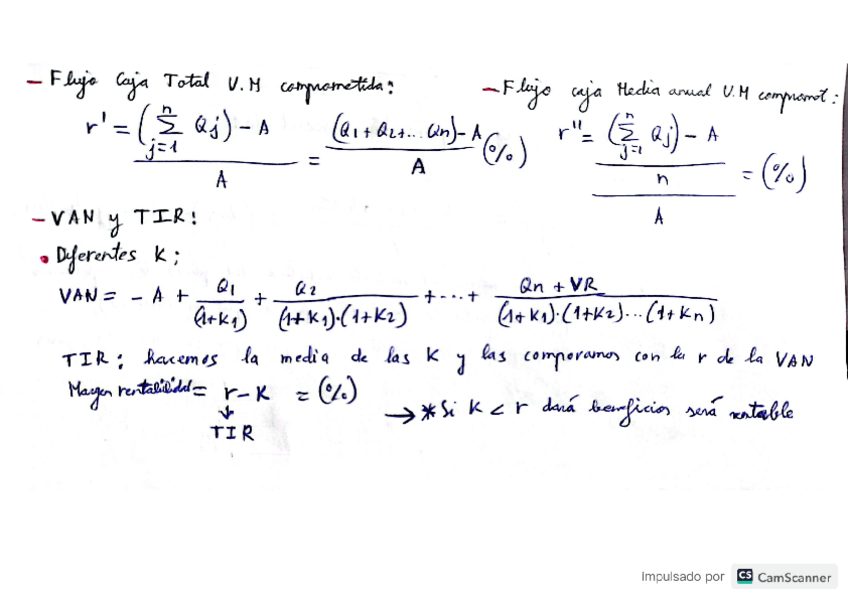 - Flujo Caja Total U.M comprometida:
r' = ((∑_{j=1}^{n} Qj) - A) / A = ((Q1 + Q2 + ... Qn) - A) / A (%)
- Flujo caja Media anual U.M compromet:
r'' = (((∑_{j=1}^{n} Qj) - A) / n) / A = (%)
- VAN y TIR:
• Diferentes K;
VAN = - A + Q1 / (1+K1) + Q2 / ((1+K1)·(1+K2)) + ... + (Qn + VR) / ((1+K1)·(1+K2)...(1+Kn))
TIR: hacemos la media de las K y las comparamos con la r de la VAN
Margen rentabilidad = r - K = (%)
↓
TIR
→ * Si K < r dará beneficios será rentable
Impulsado por CS CamScanner